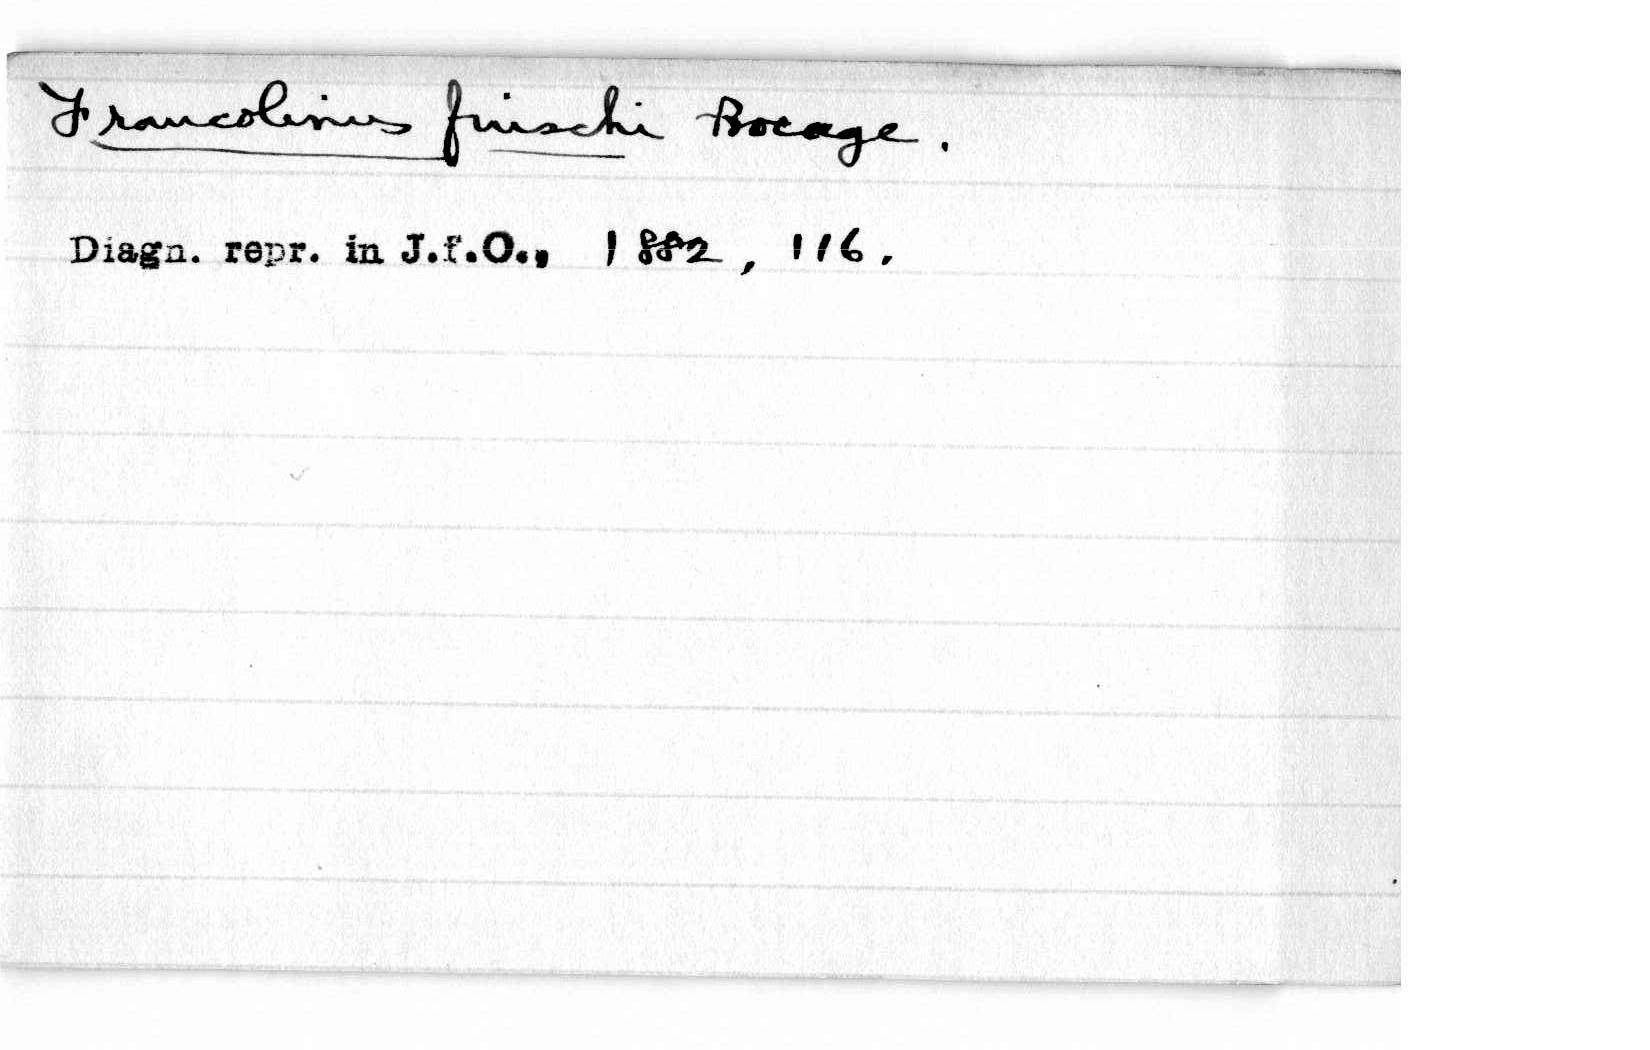 Francolinus finschi Bocage.
Diagn. repr. in J.f.O., 1882, 116.